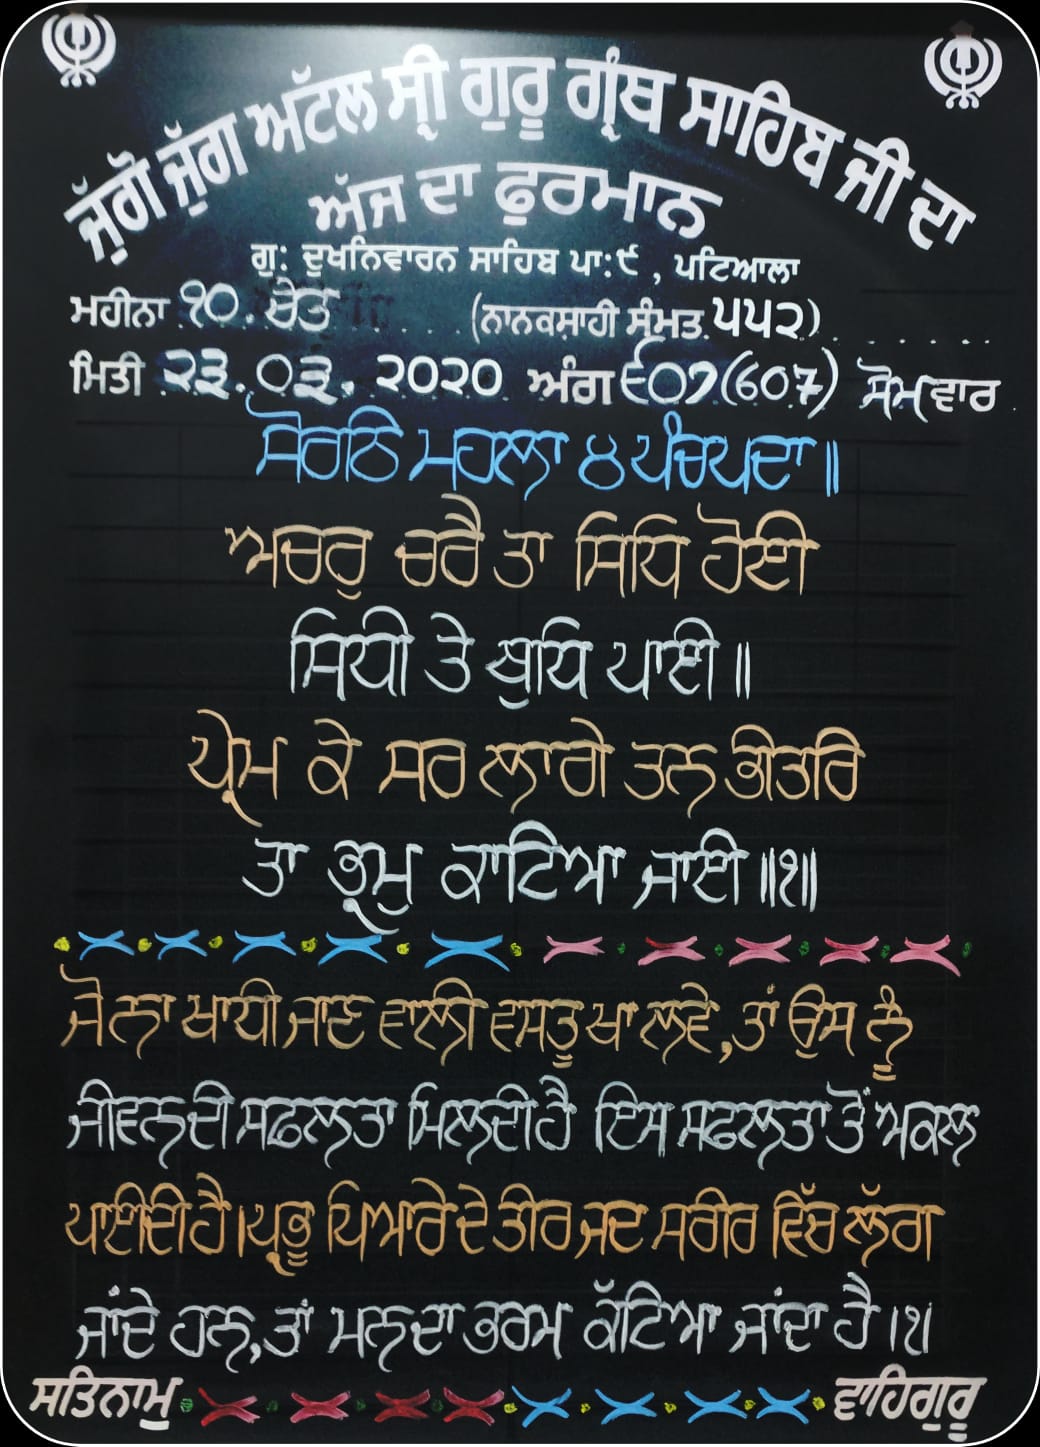 ਜੁੱਗੋ ਜੁੱਗ ਅਟੱਲ ਸ੍ਰੀ ਗੁਰੂ ਗ੍ਰੰਥ ਸਾਹਿਬ ਜੀ ਦਾ
ਅੱਜ ਦਾ ਫੁਰਮਾਨ
ਗੁ: ਦੁਖਨਿਵਾਰਨ ਸਾਹਿਬ ਪਾ:੯, ਪਟਿਆਲਾ
ਮਹੀਨਾ ੧੦. ਚੇਤ (ਨਾਨਕਸ਼ਾਹੀ ਸੰਮਤ ੫੫੨)
ਮਿਤੀ ੨੩.੦੩.੨੦੨੦ ਅੰਗ ੬੦੭(607) ਸੋਮਵਾਰ
ਸੋਰਠਿ ਮਹਲਾ ੪ ਪੰਚਪਦਾ॥
ਅਚਰੁ ਚਰੈ ਤਾ ਸਿਧਿ ਹੋਈ
ਸਿਧੀ ਤੇ ਬੁਧਿ ਪਾਈ॥
ਪ੍ਰੇਮ ਕੇ ਸਰ ਲਾਗੇ ਤਨ ਭੀਤਰਿ
ਤਾ ਭ੍ਰਮੁ ਕਾਟਿਆ ਜਾਈ॥੧॥
ਜੋ ਨਾ ਖਾਧੀ ਜਾਣ ਵਾਲੀ ਵਸਤੂ ਖਾ ਲਵੇ, ਤਾਂ ਉਸ ਨੂੰ
ਜੀਵਨ ਦੀ ਸਫਲਤਾ ਮਿਲਦੀ ਹੈ ਇਸ ਸਫਲਤਾ ਤੋਂ ਅਕਲ
ਪਾਈਦੀ ਹੈ।ਪ੍ਰਭੂ ਪਿਆਰੇ ਦੇ ਤੀਰ ਜਦ ਸਰੀਰ ਵਿੱਚ ਲੱਗ
ਜਾਂਦੇ ਹਨ, ਤਾਂ ਮਨ ਦਾ ਭਰਮ ਕੱਟਿਆ ਜਾਂਦਾ ਹੈ।੧।
ਸਤਿਨਾਮੁ ਵਾਹਿਗੁਰੂ